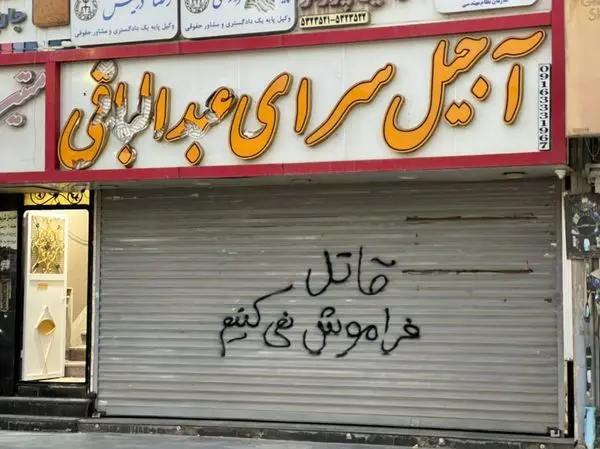 وکیل پایه یک دادگستری و مشاور حقوقی
وکیل پایه یک دادگستری و مشاور حقوقی
۵۳۲۳۵۲۱-۵۳۲۲۵۲۲
آجیل سرای عبدالباقی
09163331967
قاتل
فراموش نمی کنیم